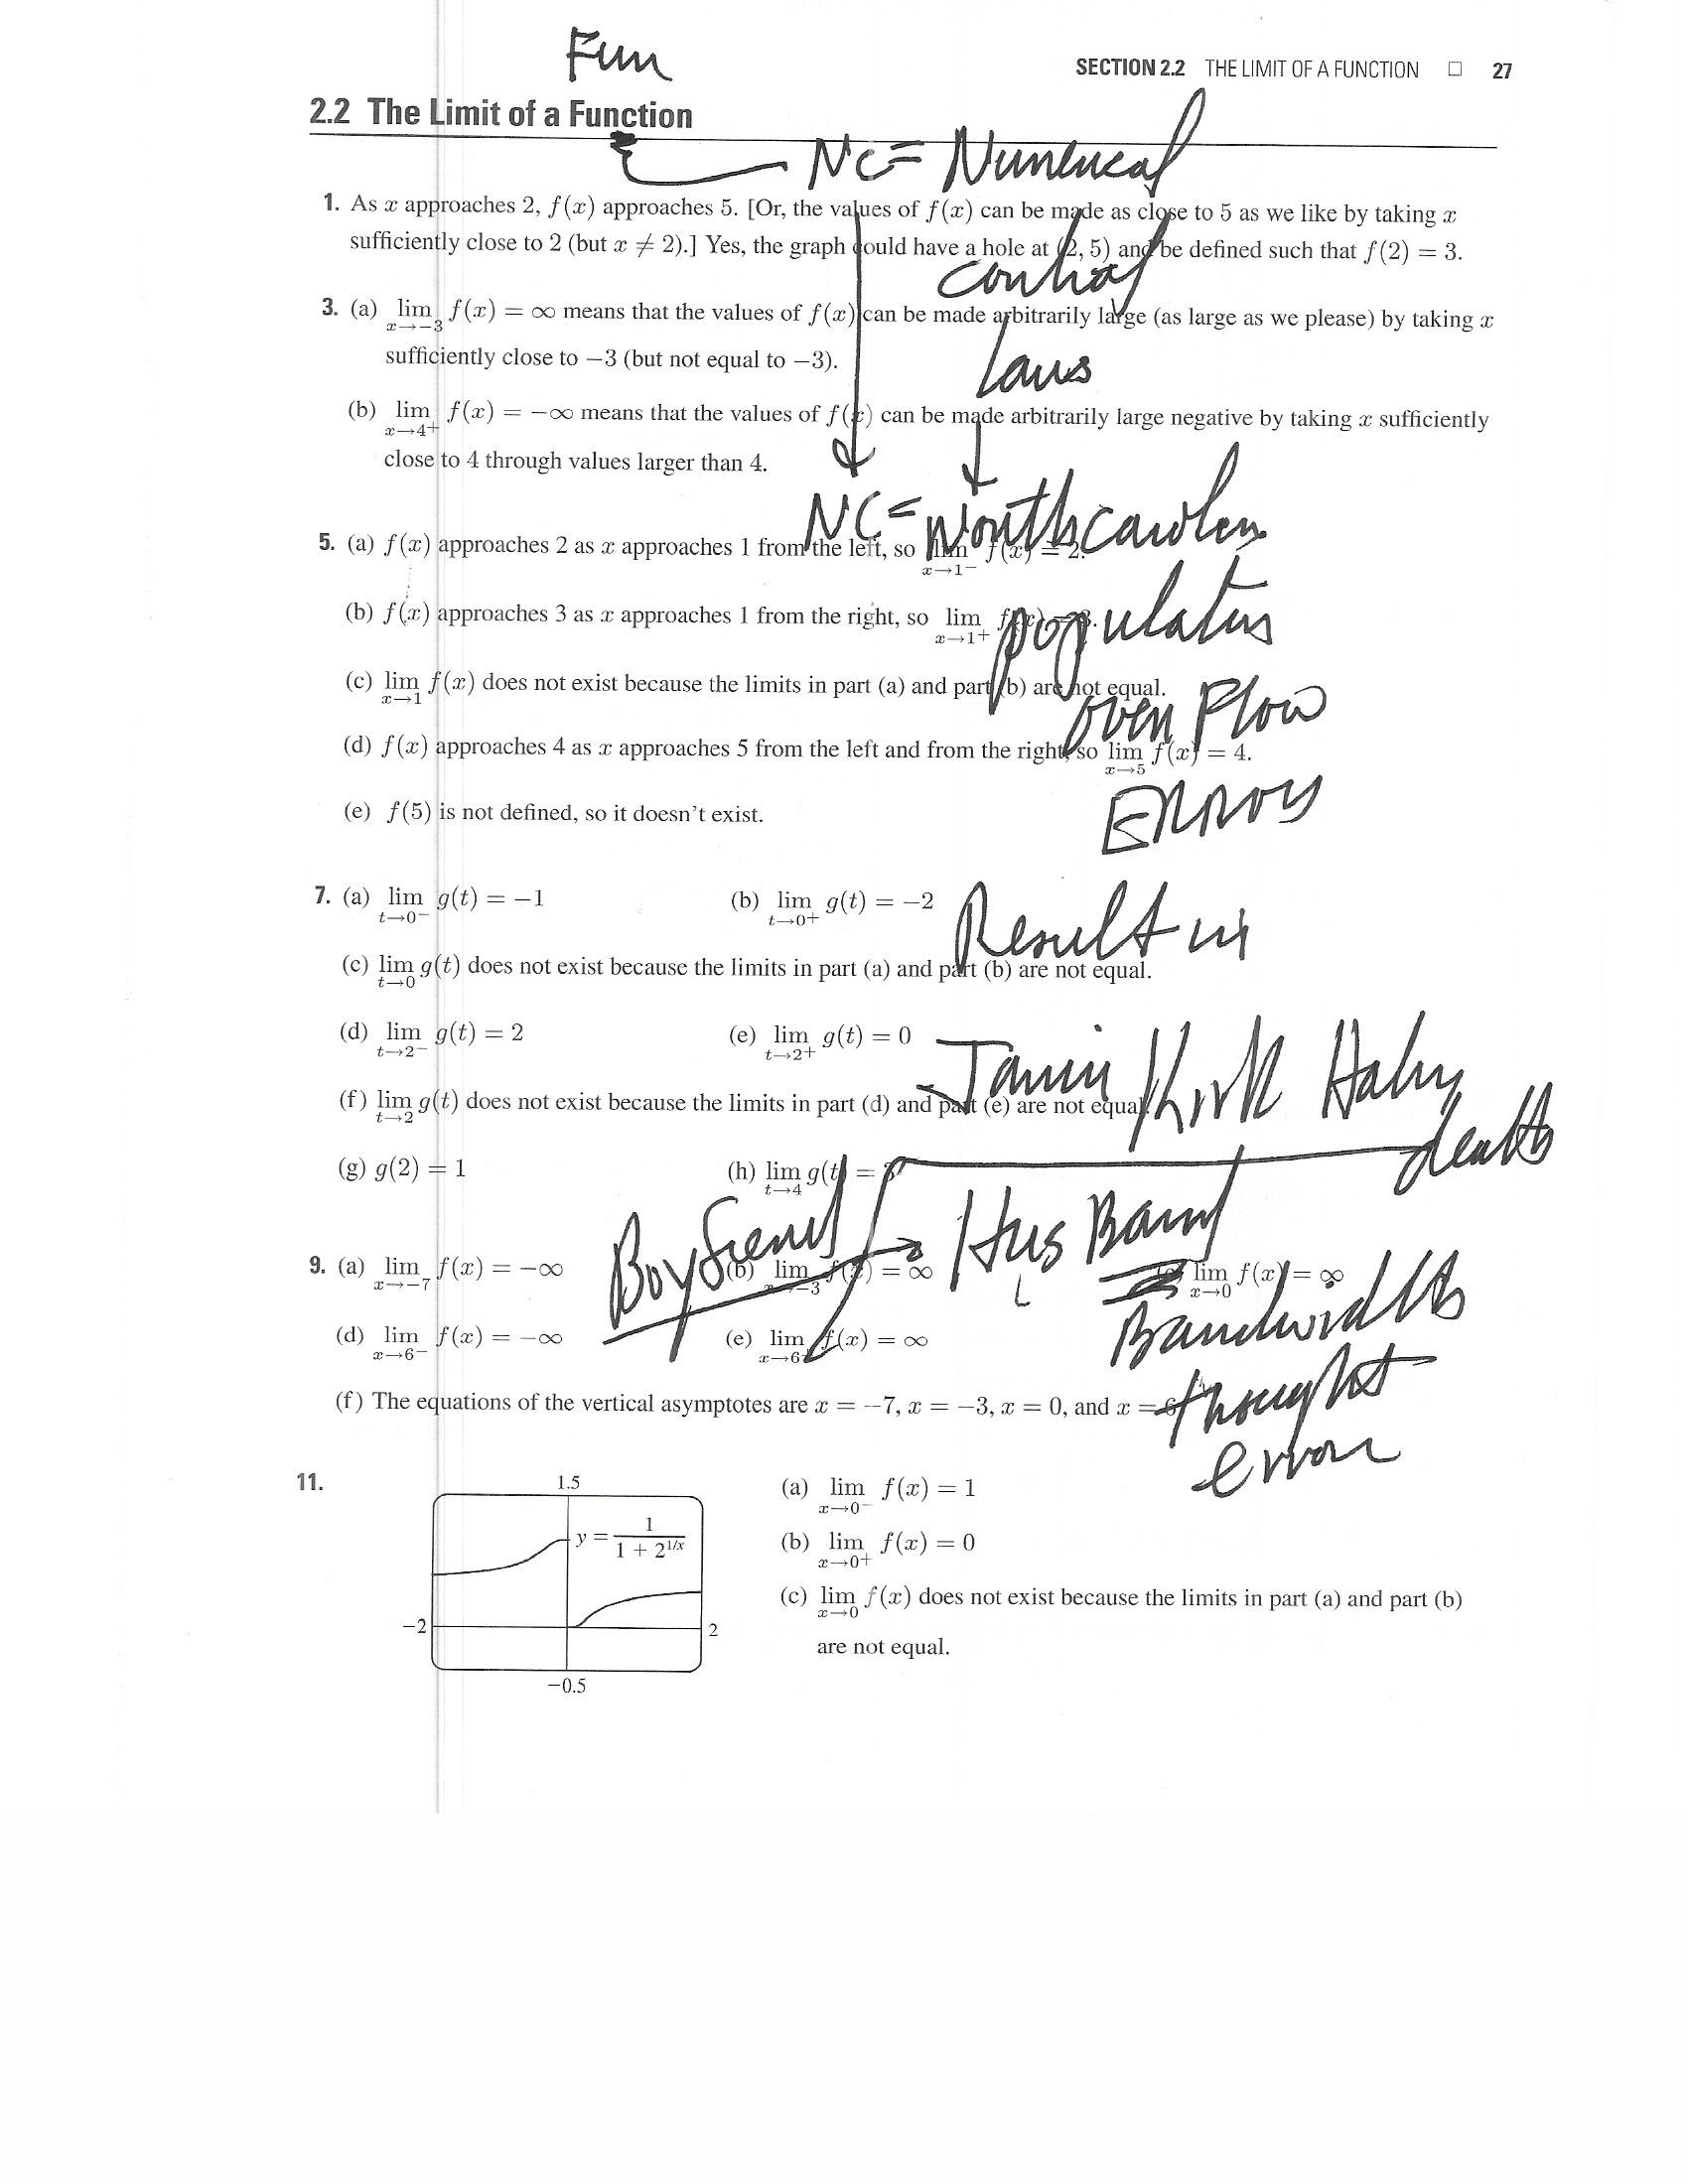 Fun
SECTION 2.2 THE LIMIT OF A FUNCTION □ 27
2.2 The Limit of a Function
NC = Numerical
1. As x approaches 2, f(x) approaches 5. [Or, the values of f(x) can be made as close to 5 as we like by taking x
sufficiently close to 2 (but x ≠ 2).] Yes, the graph could have a hole at (2, 5) and be defined such that f(2) = 3.
control
3. (a) lim x→−3 f(x) = ∞ means that the values of f(x) can be made arbitrarily large (as large as we please) by taking x
sufficiently close to −3 (but not equal to −3).
Laws
(b) lim x→4+ f(x) = −∞ means that the values of f(x) can be made arbitrarily large negative by taking x sufficiently
close to 4 through values larger than 4.
NC =
5. (a) f(x) approaches 2 as x approaches 1 from the left, so lim x→1− f(x) = 2.
(b) f(x) approaches 3 as x approaches 1 from the right, so lim x→1+
(c) lim x→1 f(x) does not exist because the limits in part (a) and part (b) are not equal.
over Flow
(d) f(x) approaches 4 as x approaches 5 from the left and from the right, so lim x→5 f(x) = 4.
Errors
(e) f(5) is not defined, so it doesn't exist.
7. (a) lim t→0− g(t) = −1 (b) lim t→0+ g(t) = −2
Result in
(c) lim t→0 g(t) does not exist because the limits in part (a) and part (b) are not equal.
(d) lim t→2− g(t) = 2 (e) lim t→2+ g(t) = 0
Kirk
(f) lim t→2 g(t) does not exist because the limits in part (d) and part (e) are not equal.
death
(g) g(2) = 1 (h) lim t→4 g(t) =
Boyfriend HusBand
9. (a) lim x→−7 f(x) = −∞ (b) lim x→−3 f(x) = ∞ lim x→0 f(x) = ∞
Bandwidth
(d) lim x→6− f(x) = −∞ (e) lim x→6+ f(x) = ∞
thought
(f) The equations of the vertical asymptotes are x = −7, x = −3, x = 0, and x = 6.
error
11.
1.5
y = 1 / (1 + 2^(1/x))
−2
2
−0.5
(a) lim x→0− f(x) = 1
(b) lim x→0+ f(x) = 0
(c) lim x→0 f(x) does not exist because the limits in part (a) and part (b)
are not equal.